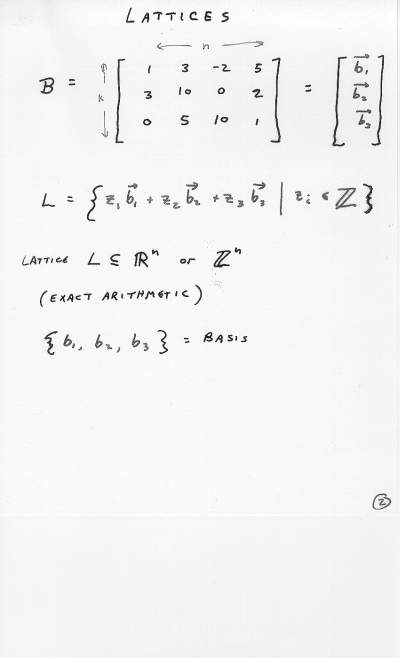 LATTICES
← n →
B = ↑ k ↓ [ 1 3 -2 5
3 10 0 2
0 5 10 1 ] = [ b⃗₁
b⃗₂
b⃗₃ ]
L = { z₁b⃗₁ + z₂b⃗₂ + z₃b⃗₃ | zᵢ ∈ ℤ }
LATTICE L ⊆ ℝⁿ or ℤⁿ
(EXACT ARITHMETIC)
{ b₁, b₂, b₃ } = BASIS
2